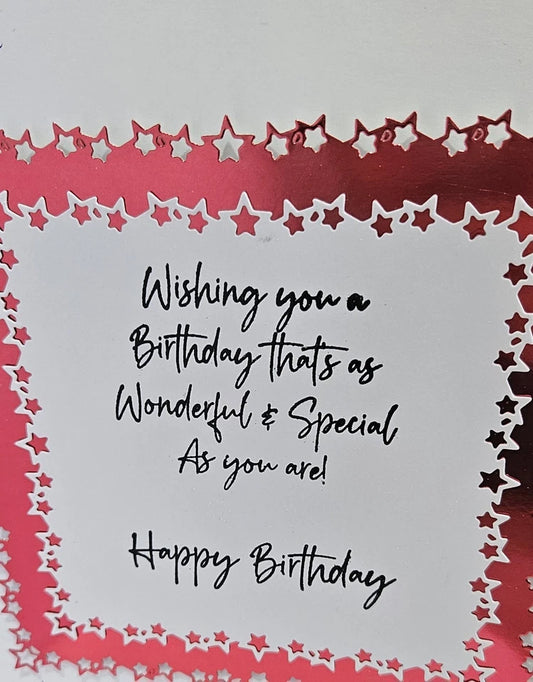 Wishing you a
Birthday that's as
Wonderful & Special
As you are!
Happy Birthday